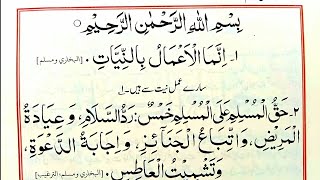 بِسْمِ اللهِ الرَّحْمٰنِ الرَّحِيْمِ
١۔ اِنَّمَا الْاَعْمَالُ بِالنِّيَّاتِ ۔ [البخاري و مسلم]
سارے عمل نیت سے ہیں۔
٢۔ حَقُّ الْمُسْلِمِ عَلَى الْمُسْلِمِ خَمْسٌ: رَدُّ السَّلَامِ، وَعِيَادَةُ
الْمَرِيْضِ، وَاتِّبَاعُ الْجَنَائِزِ، وَاِجَابَةُ الدَّعْوَةِ،
وَتَشْمِيْتُ الْعَاطِسِ ۔ [البخاري و مسلم، الترغيب]